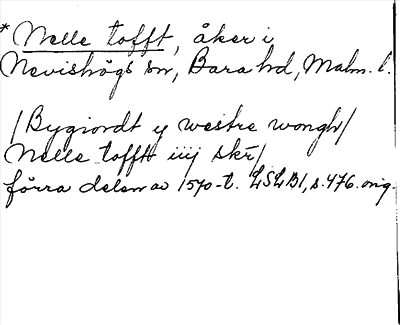 * Nelle tofft, åker i
Nevishögs sn, Bara hd, Malm. l.
/Bygiordt y westre wongh/
Nelle tofftt iiij skr/
förra delen av 1570-t. LSLB1, s. 476. orig.